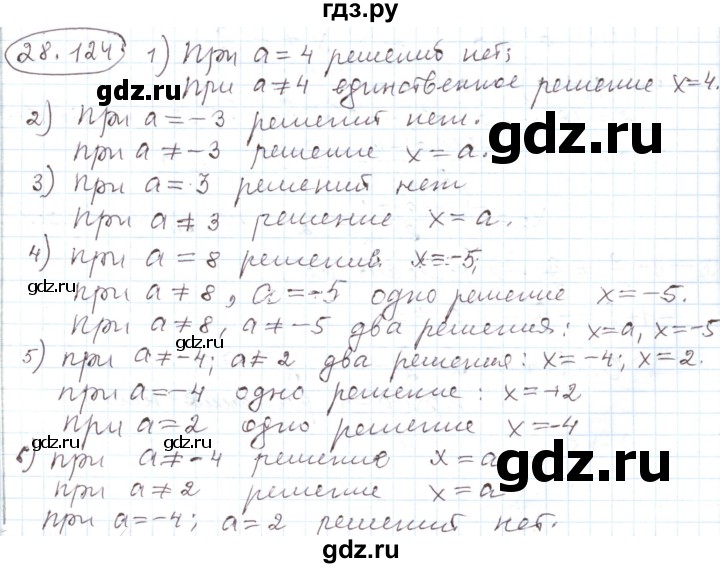 гдз.ру
28.124 1) При a = 4 решений нет;
При a ≠ 4 единственное решение x=4.
2) При a = -3 решений нет.
при a ≠ -3 решение x = a.
3) При a = 3 решений нет
при a ≠ 3 решение x = a.
4) при a = 8 решение x=-5;
при a ≠ 8, a = -5 одно решение x = -5.
При a ≠ 8, a ≠ -5 два решения: x=a, x=-5
5) при a ≠ -4; a ≠ 2 два решения: x = -4; x = 2.
при a = -4 одно решение: x = +2
при a = 2 одно решение x = -4
6) при a ≠ -4 решение x = a
при a ≠ 2 решение x = a
при a = -4; a = 2 решений нет.
gdz.ru
gdz.ru
gdz.ru
gdz.ru
gdz.ru
gdz.ru
gdz.ru
gdz.ru